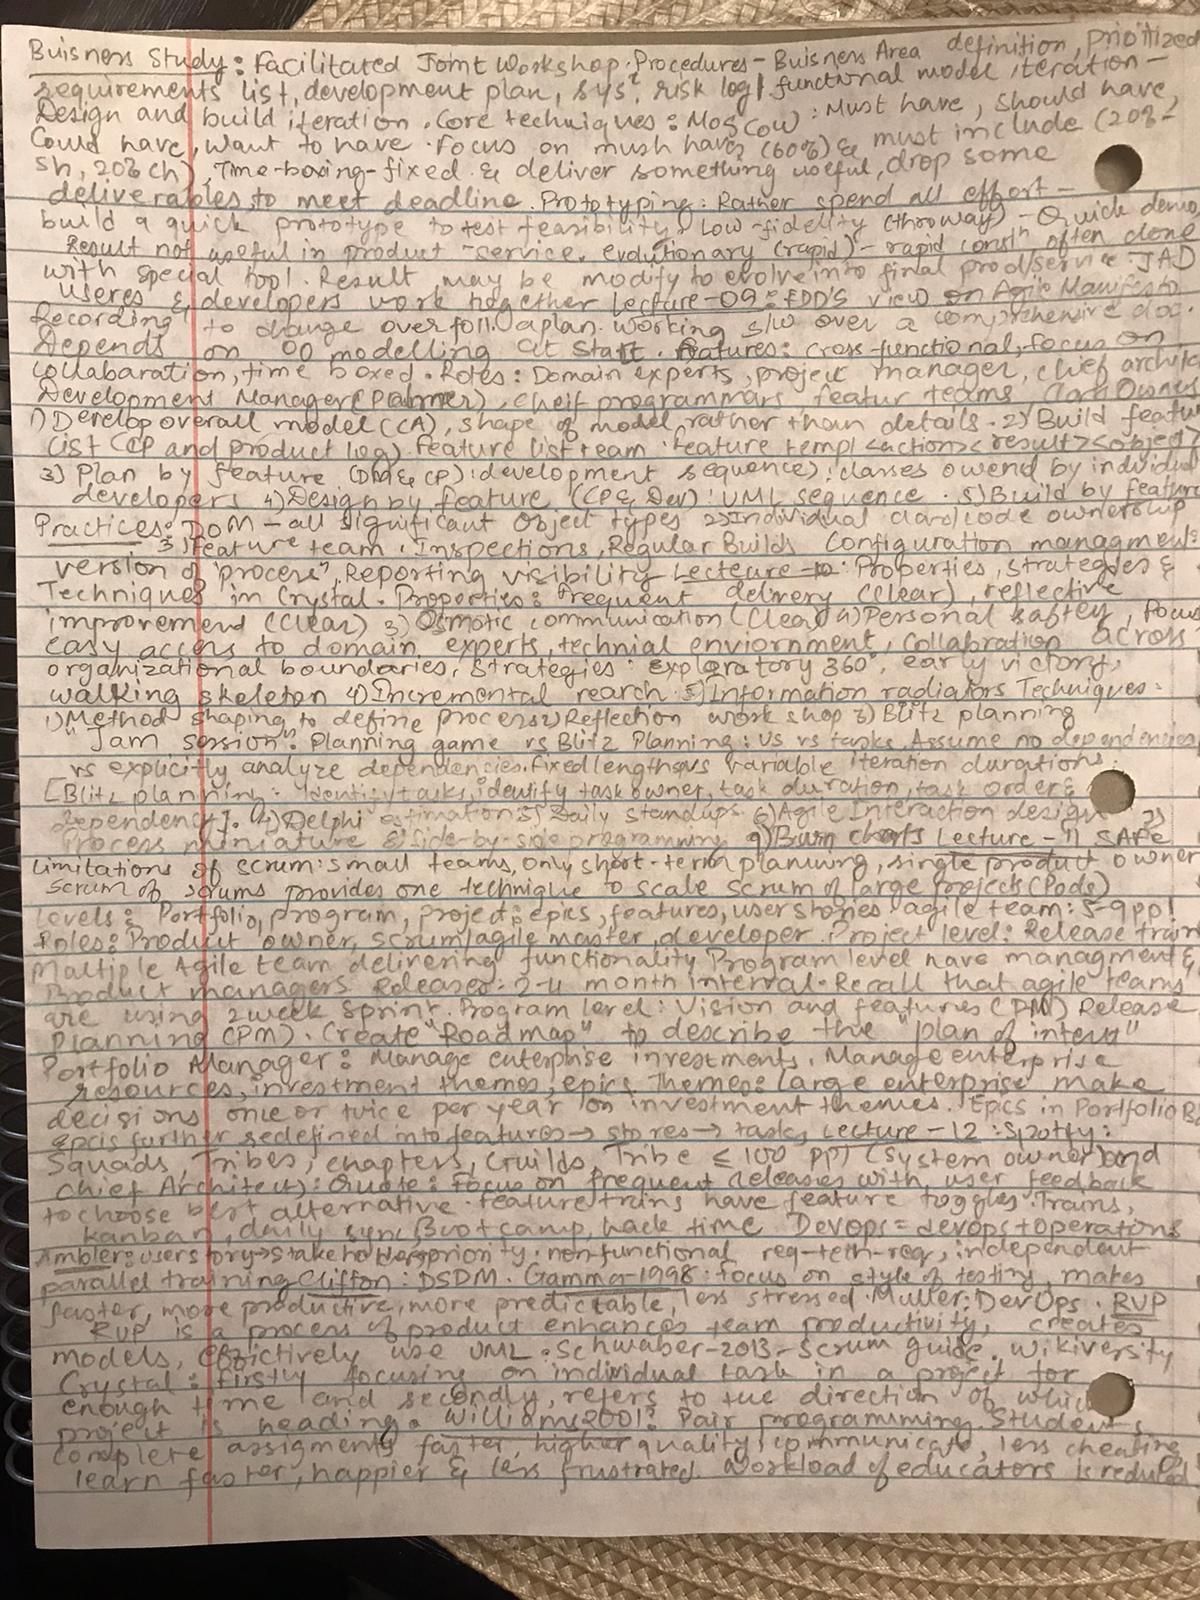 Buisness Study: Facilitated Joint Workshop. Procedures - Buisness Area definition, prioitized
requirements list, development plan, sys, risk log/. functional model iteration -
Design and build iteration. Core techniques: MosCow: Must have, should have,
Could have, Want to have. Focus on mush have (60%) & must include (20%
sh, 20% ch), Time-boxing-fixed & deliver something useful, drop some
deliverables to meet deadline. Prototyping: Rather spend all effort -
build a quick prototype to test feasibility. Low-fidelity (throway) - Quick demo,
Result not useful in product -service. evolutionary (rapid) - rapid const often done
with special tool. Result may be modify to evolve into final prod/service. JAD
useres & developers work together Lecture-09: FDD'S view on Agile Manifesto
to change over foll. a plan. working s/w over a comprehensive doc.
Depends on OO modelling at start. Features: cross-functional, focus on
collabaration, time boxed. Roles: Domain experts, project manager, chief archite
Development Manager (Planner), cheif programmars featur teams, Owner
1) Develop overall model (CA), shape of model rather than details. 2) Build featu
list (CP and product log). Feature list team. Feature templ <action> <result> <object>
3) Plan by feature (DM & CP): development sequence): classes owend by individual
developers 4) Design by feature (CP & Dev): UML sequence. 5) Build by feature
Practices: DOM - all significant object types 2) Individual class/code ownership
3) Feature team, Inspections, Regular Builds Configuration managment:
version of "process", Reporting visibility Lecteure-10: Properties, strategies &
Techniques in Crystal. Properties: frequent delivery (Clear), reflective
improvement (Clear) 3) Osmotic communication (Clear) 4) Personal saftey, focus
easy access to domain experts, technial enviornment, Collabration across
organizational boundaries, Strategies: exploratory 360°, early victory,
walking skeleton 4) Incremental rearch 5) Information radiators Techniques:
1) Method shaping to define process 2) Reflection work shop 3) Blitz planning
"Jam session". Planning game vs Blitz Planning: US vs tasks, Assume no dependencies
vs explicitly analyze dependencies. fixed length vs variable iteration durations.
[Blitz planning: Identify tasks, identify task owner, task duration, task order &
dependency]. 4) Delphi estimation 5) Daily standups 6) Agile Interaction design 7)
Process miniature 8) Side-by-side programming 9) Burn charts Lecture-11 SAFe
Limitations of scrum: small teams, only short-term planning, single product owner
Scrum of scrums provides one technique to scale Scrum of large projects (Pods)
Levels: Portfolio, program, project: epics, features, user stories. agile team: 5-9 ppl
Roles: Product owner, scrum/agile master, developer. Project level: Release train
Maltiple Agile team delivering functionality Program level have managment &
Product managers Releases: 2-4 month interval. Recall that agile teams
are using 2 week sprint. Program level: Vision and features (PM) Release
Planning (PM). Create "Roadmap" to describe the "plan of intent"
Portfolio Manager: Manage enterprise investments. Manage enterprise
resources, investment themes, epics Themes: large enterprise make
decisions one or twice per year on investment themes. Epics in Portfolio Ba
Epcis further redefined into features → stores → tasks, Lecture-12: Spotfy:
Squads, Tribes, chapters, Guilds, Tribe ≤ 100 ppl (System owner) and
Chief Architect): Quote: Focus on frequent releases with, user feedback
to choose best alternative. feature trains have feature toggles. Trains,
kanban, daily sync, Bootcamp, hack time Devops = devops + operations
Ambler: users tory → stake holders priority. non-functional req-tech-req, independent
parallel training Clifton: DSDM. Gamma-1998: focus on style of testing, makes
faster, more productive, more predictable, less stressed. Muller: DevOps. RUP
RUP is a process of product enhances team productivity, creates
models, effictively use UML. Schwaber-2013-Scrum guide. wikiversity
Crystal: firstly focusing on individual task in a project for
enough time and secondly, refers to the direction of which
project is heading. Williams 2001: Pair programming. Students
complete assigments faster, higher quality, communicate, less cheating,
learn faster, happier & less frustrated. Workload of educators is reduced